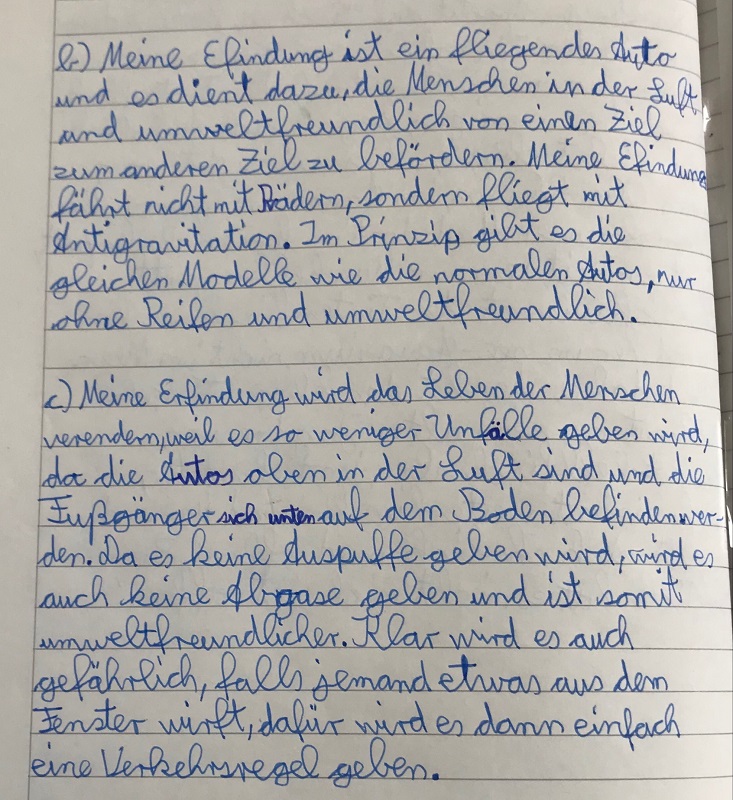 b.) Meine Efindung ist ein fliegendes Auto
und es dient dazu, die Menschen in der Luft
und umweltfreundlich von einen Ziel
zum anderen Ziel zu befördern. Meine Efindung
fährt nicht mit Rädern, sondern fliegt mit
Antigravitation. Im Prinzip gibt es die
gleichen Modelle wie die normalen Autos, nur
ohne Reifen und umweltfreundlich.
c.) Meine Erfindung wird das Leben der Menschen
verendern, weil es so weniger Unfälle geben wird,
da die Autos oben in der Luft sind und die
Fußgänger sich unten auf dem Boden befinden wer-
den. Da es keine Auspuffe geben wird, wird es
auch keine Abgase geben und ist somit
umweltfreundlicher. Klar wird es auch
gefährlich, falls jemand etwas aus dem
Fenster wirft, dafür wird es dann einfach
eine Verkehrsregel geben.